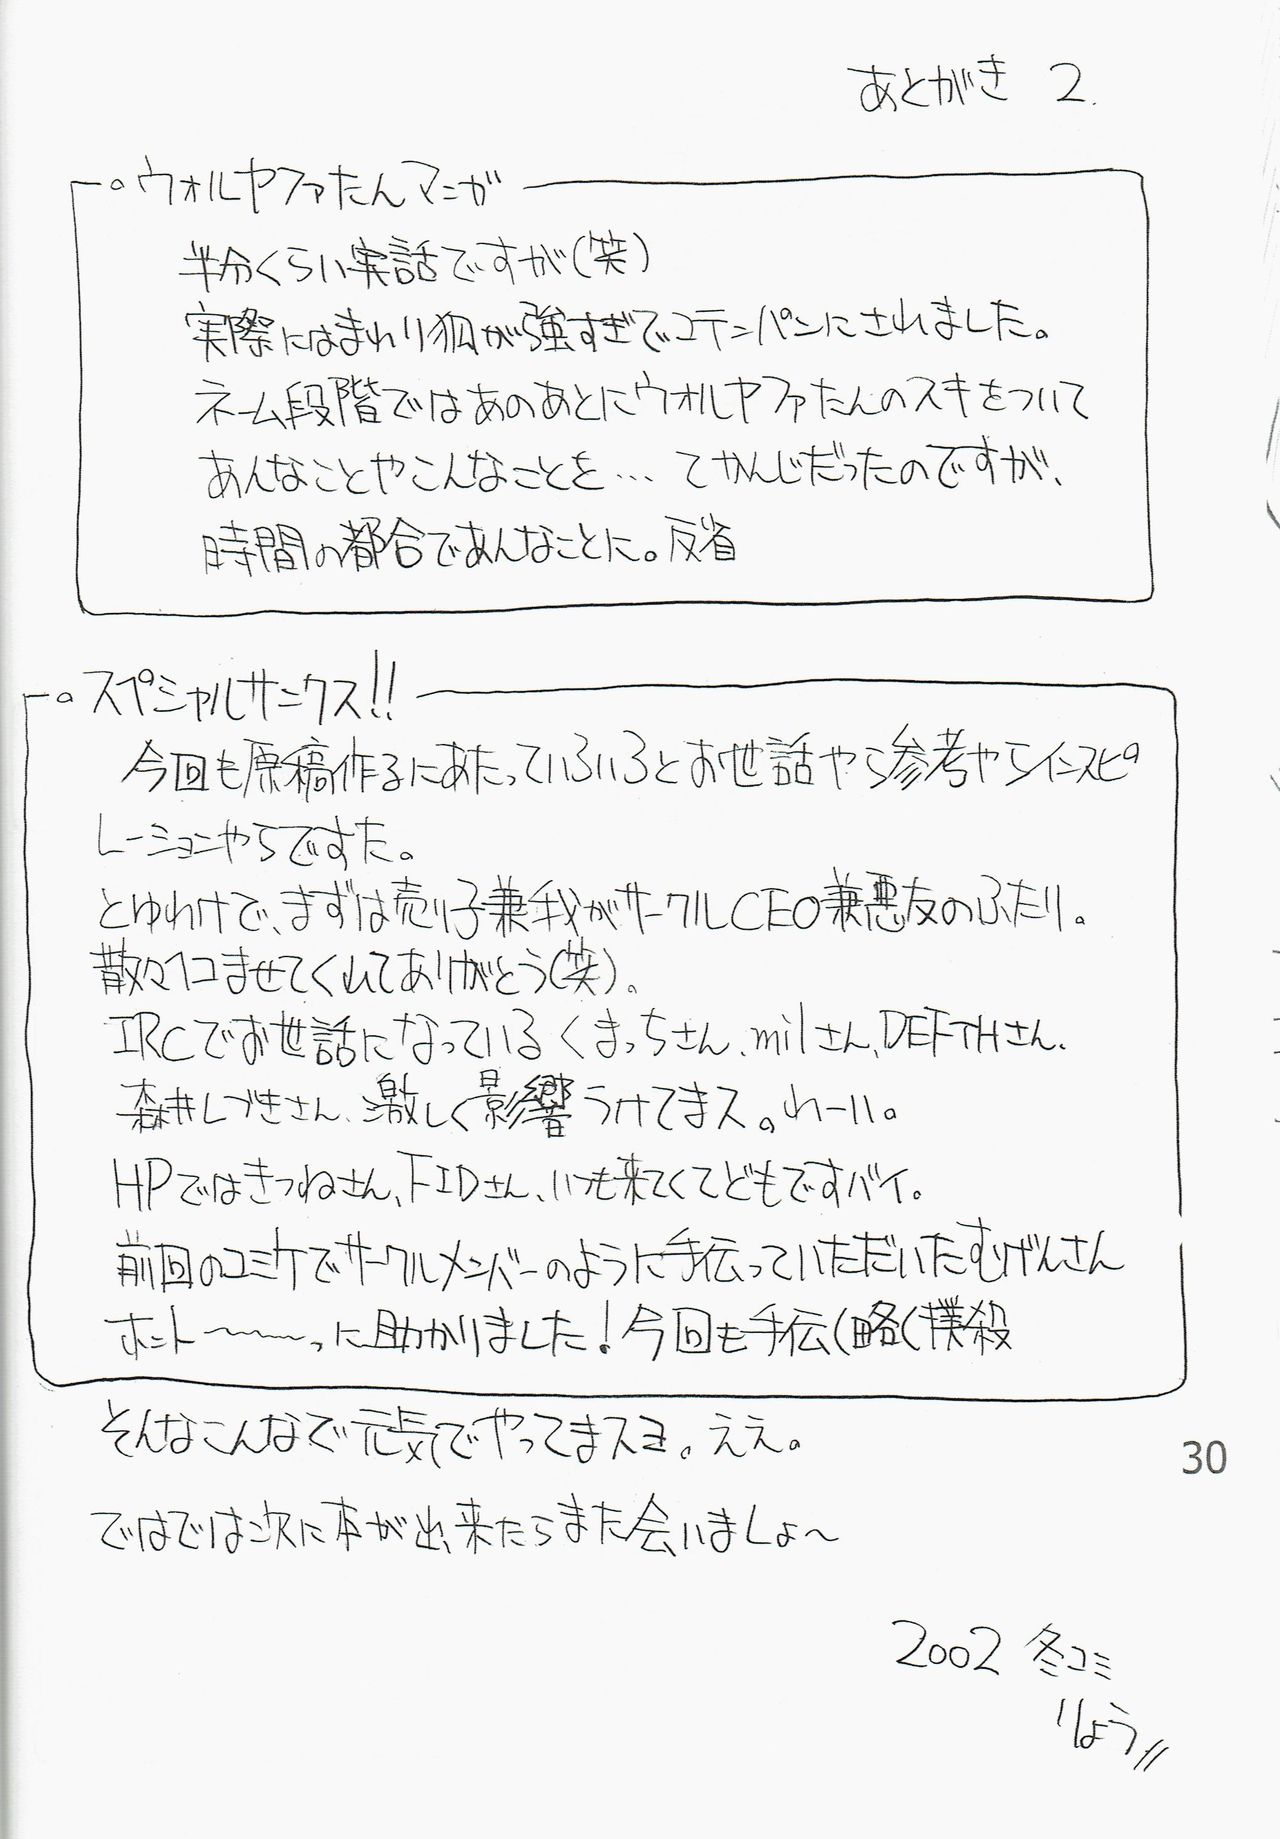 あとがき 2.
ウォルヤファたんマンガ
半分くらい実話ですが(笑)
実際にはまわり狐が強すぎでコテンパンにされました。
ネーム段階ではあのあとにウォルヤファたんのスキをついて
あんなことやこんなことを… てかんじだったのですが、
時間の都合であんなことに。反省
スペシャルサンクス!!
今回も原稿作るにあたっていろいろとお世話やら参考やらインスピ
レーションやらですた。
とゆわけで、まずは売り子兼我がサークルCEO兼悪友のふたり。
散々ヘコませてくれてありがとう(笑)。
IRCでお世話になっているくまっちさん、milさん、DEFTHさん、
森井しづきさん、激しく影響うけてまス。わーい。
HPではきつねさん、FIDさん、いつも来てくてどもですバイ。
前回のコミケでサークルメンバーのように手伝っていただいたむげんさん
ホント〜〜〜っに助かりました!今回も手伝(略(撲殺
そんなこんなで元気でやってまスヨ。ええ。
30
ではでは次に本が出来たらまた会いましょ〜
2002 冬コミ
りょう//